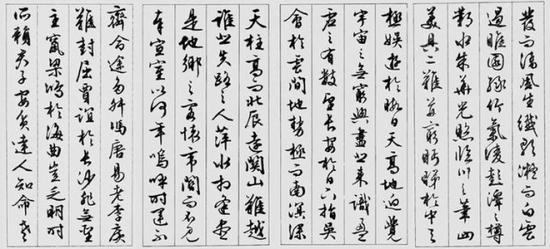 發而清風生纖歌凝而白雲
遏睢園綠竹氣凌彭澤之樽
鄴水朱華光照臨川之筆四
美具二難並窮睇眄於中天
極娛遊於暇日天高地迥覺
宇宙之無窮興盡悲來識盈
虛之有數望長安於日下指吳
會於雲間地勢極而南溟深
天柱高而北辰遠關山難越
誰悲失路之人萍水相逢盡
是他鄉之客懷帝閽而不見
奉宣室以何年嗚呼時運不
齊命途多舛馮唐易老李廣
難封屈賈誼於長沙非無聖
主竄梁鴻於海曲豈乏明時
所賴君子安貧達人知命老